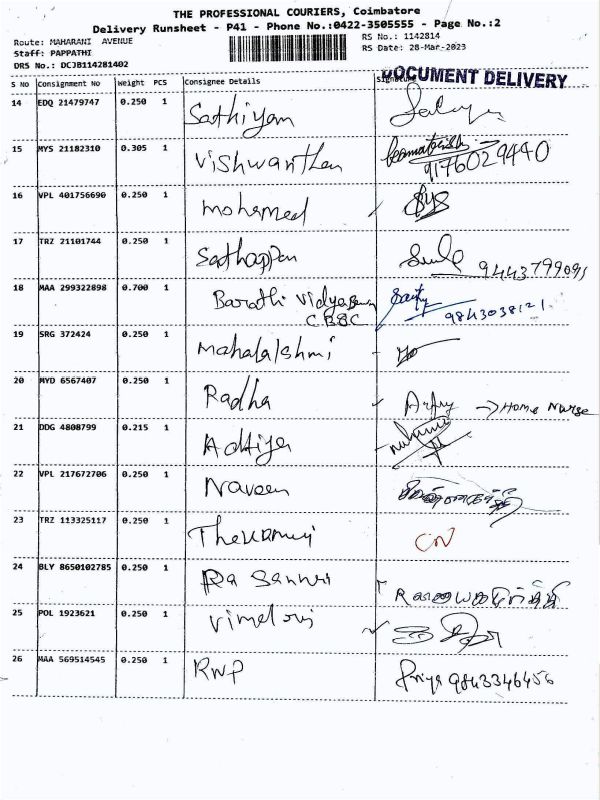 THE PROFESSIONAL COURIERS, Coimbatore
Delivery Runsheet - P41 - Phone No.:0422-3505555 - Page No.:2
Route: MAHARANI AVENUE
RS No.: 1142814
Staff: PAPPATHI
RS Date: 28-Mar-2023
DRS No.: DCJB114281402
DOCUMENT DELIVERY
S No Consignment No Weight PCS Consignee Details Signature
14 EDQ 21479747 0.250 1 Sathiyam
15 MYS 21182310 0.305 1 Vishwanthan
9176029440
16 VPL 401756690 0.250 1 mohamed
17 TRZ 21101744 0.250 1 Sathappan
9443799095
18 MAA 299322898 0.700 1 Barathi Vidya
CBSC 9843038121
19 SRG 372424 0.250 1 Mahalalshmi
20 MYD 6567407 0.250 1 Radha → Home Nurse
21 DDG 4808799 0.215 1 Aditiya
22 VPL 217672706 0.250 1 Naveen
23 TRZ 113325117 0.250 1 CN
24 BLY 8650102785 0.250 1
25 POL 1923621 0.250 1
26 MAA 569514545 0.250 1 RWP Priya 9843346456